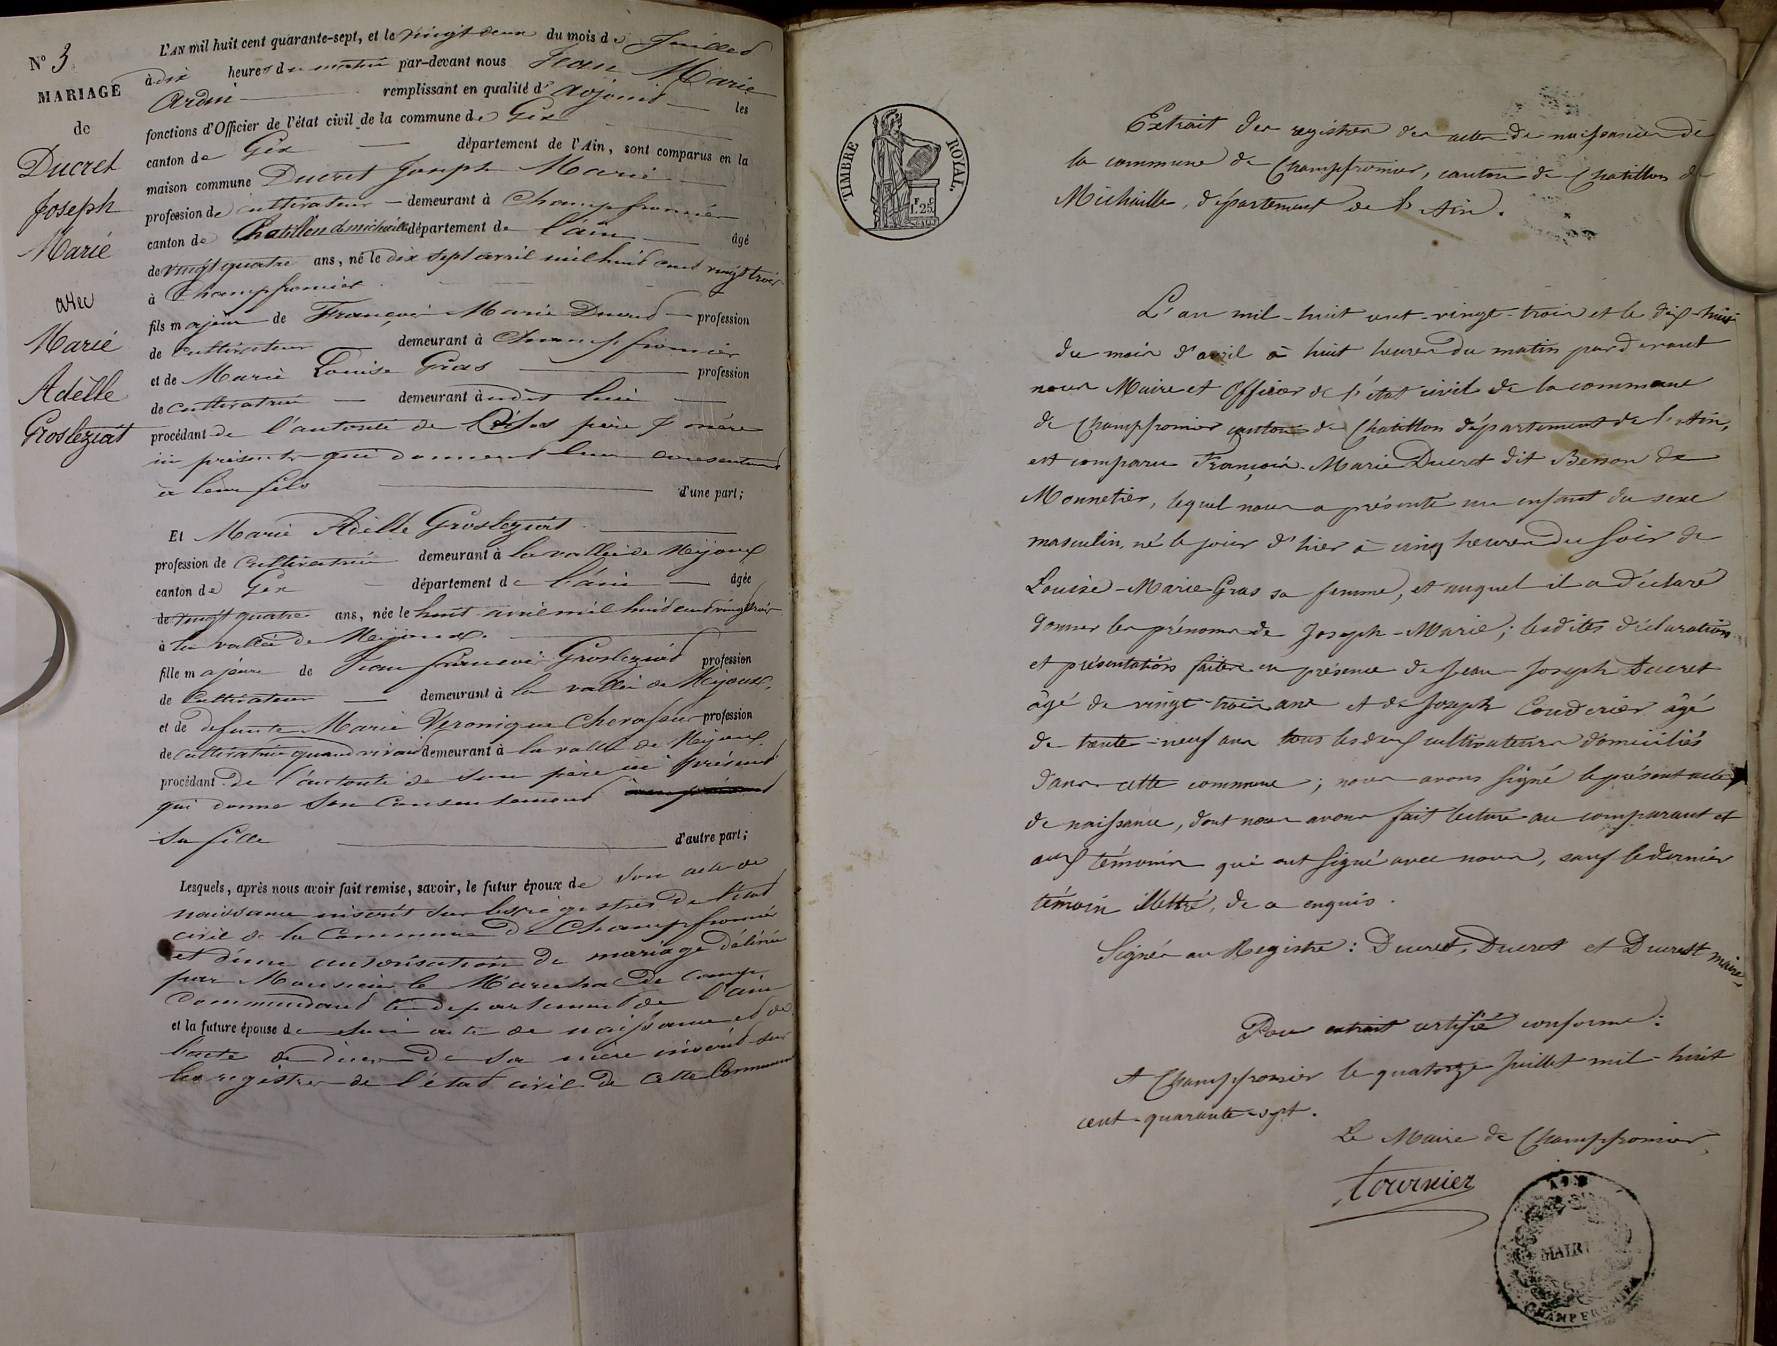 N° 3
MARIAGE
de
Ducret
Joseph
Marie
avec
Marie
Adèlle
Grosleziat
L'AN mil huit cent quarante-sept, et le vingt deux du mois de Juillet
à dix heures du matin par-devant nous Jean Marie
remplissant en qualité d'adjoint les
fonctions d'Officier de l'état civil de la commune de Gex
canton de Gex département de l'Ain, sont comparus en la
maison commune Ducret Joseph Marie
profession de cultivateur demeurant à Champfromier
canton de Chatillon dmichaille département de l'ain âgé
de vingt quatre ans, né le dix sept avril mil huit cent vingt trois
à Champfromier
fils majeur de François Marie Ducret profession
de cultivateur demeurant à Champfromier
et de Marie Louise Gras profession
de cultivatrice demeurant à udit lieu
procédant de l'autorité de ses père & mère
ici présents qui donnent leur consentement
à leur fils d'une part;
Et Marie Adèlle Grosleziat
profession de Cultivatrice demeurant à la vallée de Mijoux
canton de Gex département de l'ain âgée
de vingt quatre ans, née le huit avril mil huit cent vingt trois
à la vallée de Mijoux.
fille majeure de Jean François Grosleziat profession
de Cultivateur demeurant à la vallée de Mijoux,
et de defunte Marie Veronique Chevassus profession
de cultivatrice quand vivait demeurant à la vallée de Mijoux.
procédant de l'autorité de son père ici présent
qui donne son Consentement
sa fille d'autre part;
Lesquels, après nous avoir fait remise, savoir, le futur époux de son acte de
naissance inscrit sur les registres de l'état
civil de la Commune de Champfromier
et d'une autorisation de mariage délivrée
par Monsieur le Maréchal de camp,
Commandant le département de l'ain
et la future épouse de son acte de naissance et de
l'acte de décès de sa mère inscrit sur
les registres de l'état civil de cette Commune
TIMBRE ROYAL.
1.25
Extrait des registres des actes de naissances de
la commune de Champfromier, canton de Chatillon de
Michaille, département de l'Ain.
L'an mil-huit cent-vingt-trois et le dix-huit
du mois d'avril à huit heures du matin par devant
nous Maire et Officier de l'état civil de la commune
de Champfromier canton de Chatillon département de l'Ain,
est comparu François-Marie Ducret dit Benson de
Monnetier, lequel nous a présenté un enfant du sexe
masculin, né le jour d'hier à cinq heures du soir de
Louise-Marie Gras sa femme, et auquel il a déclaré
donner les prénoms de Joseph-Marie; lesdites déclaration
et présentation faites en présence de Jean-Joseph Ducret
âgé de vingt-trois ans et de Joseph Coudurier âgé
de trente-neuf ans tous les deux cultivateurs domiciliés
dans cette commune; nous avons signé le présent acte
de naissance, dont nous avons fait lecture au comparant et
aux témoins qui ont signé avec nous, sauf le dernier
témoin illettré, de ce enquis.
Signés au Registre: Ducret, Ducret et Ducret maire,
Pour extrait certifié conforme:
A Champfromier le quatorze Juillet mil-huit
cent-quarante-sept.
Le Maire de Champfromier,
Tournier
AIN
MAIRIE
CHAMPFROMIER